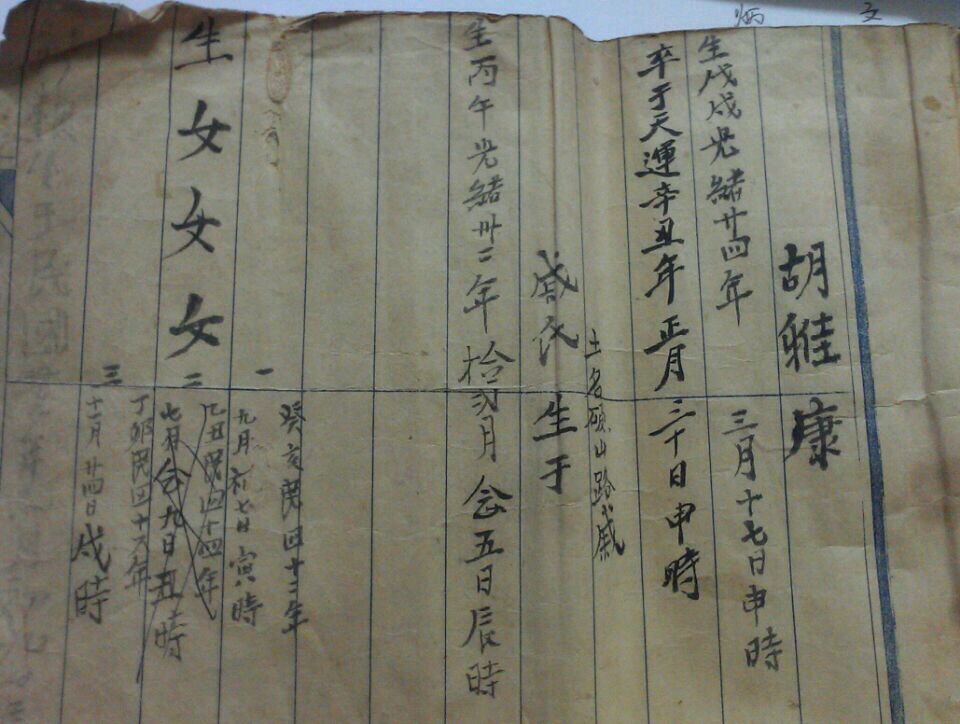 文
炳
胡雅康
生戊戌光緒廿四年 三月十七日申時
卒于天運辛丑年 正月三十日申時
土名碩山路戚
戚氏 生于
生丙午光緒卅二年 拾弍月 念五日辰時
一 癸亥民四十二年
九月初七日寅時
生女女女
二 乙丑民四十四年
七月念九日丑時
三 丁卯民四十六年
十一月廿四日戌時